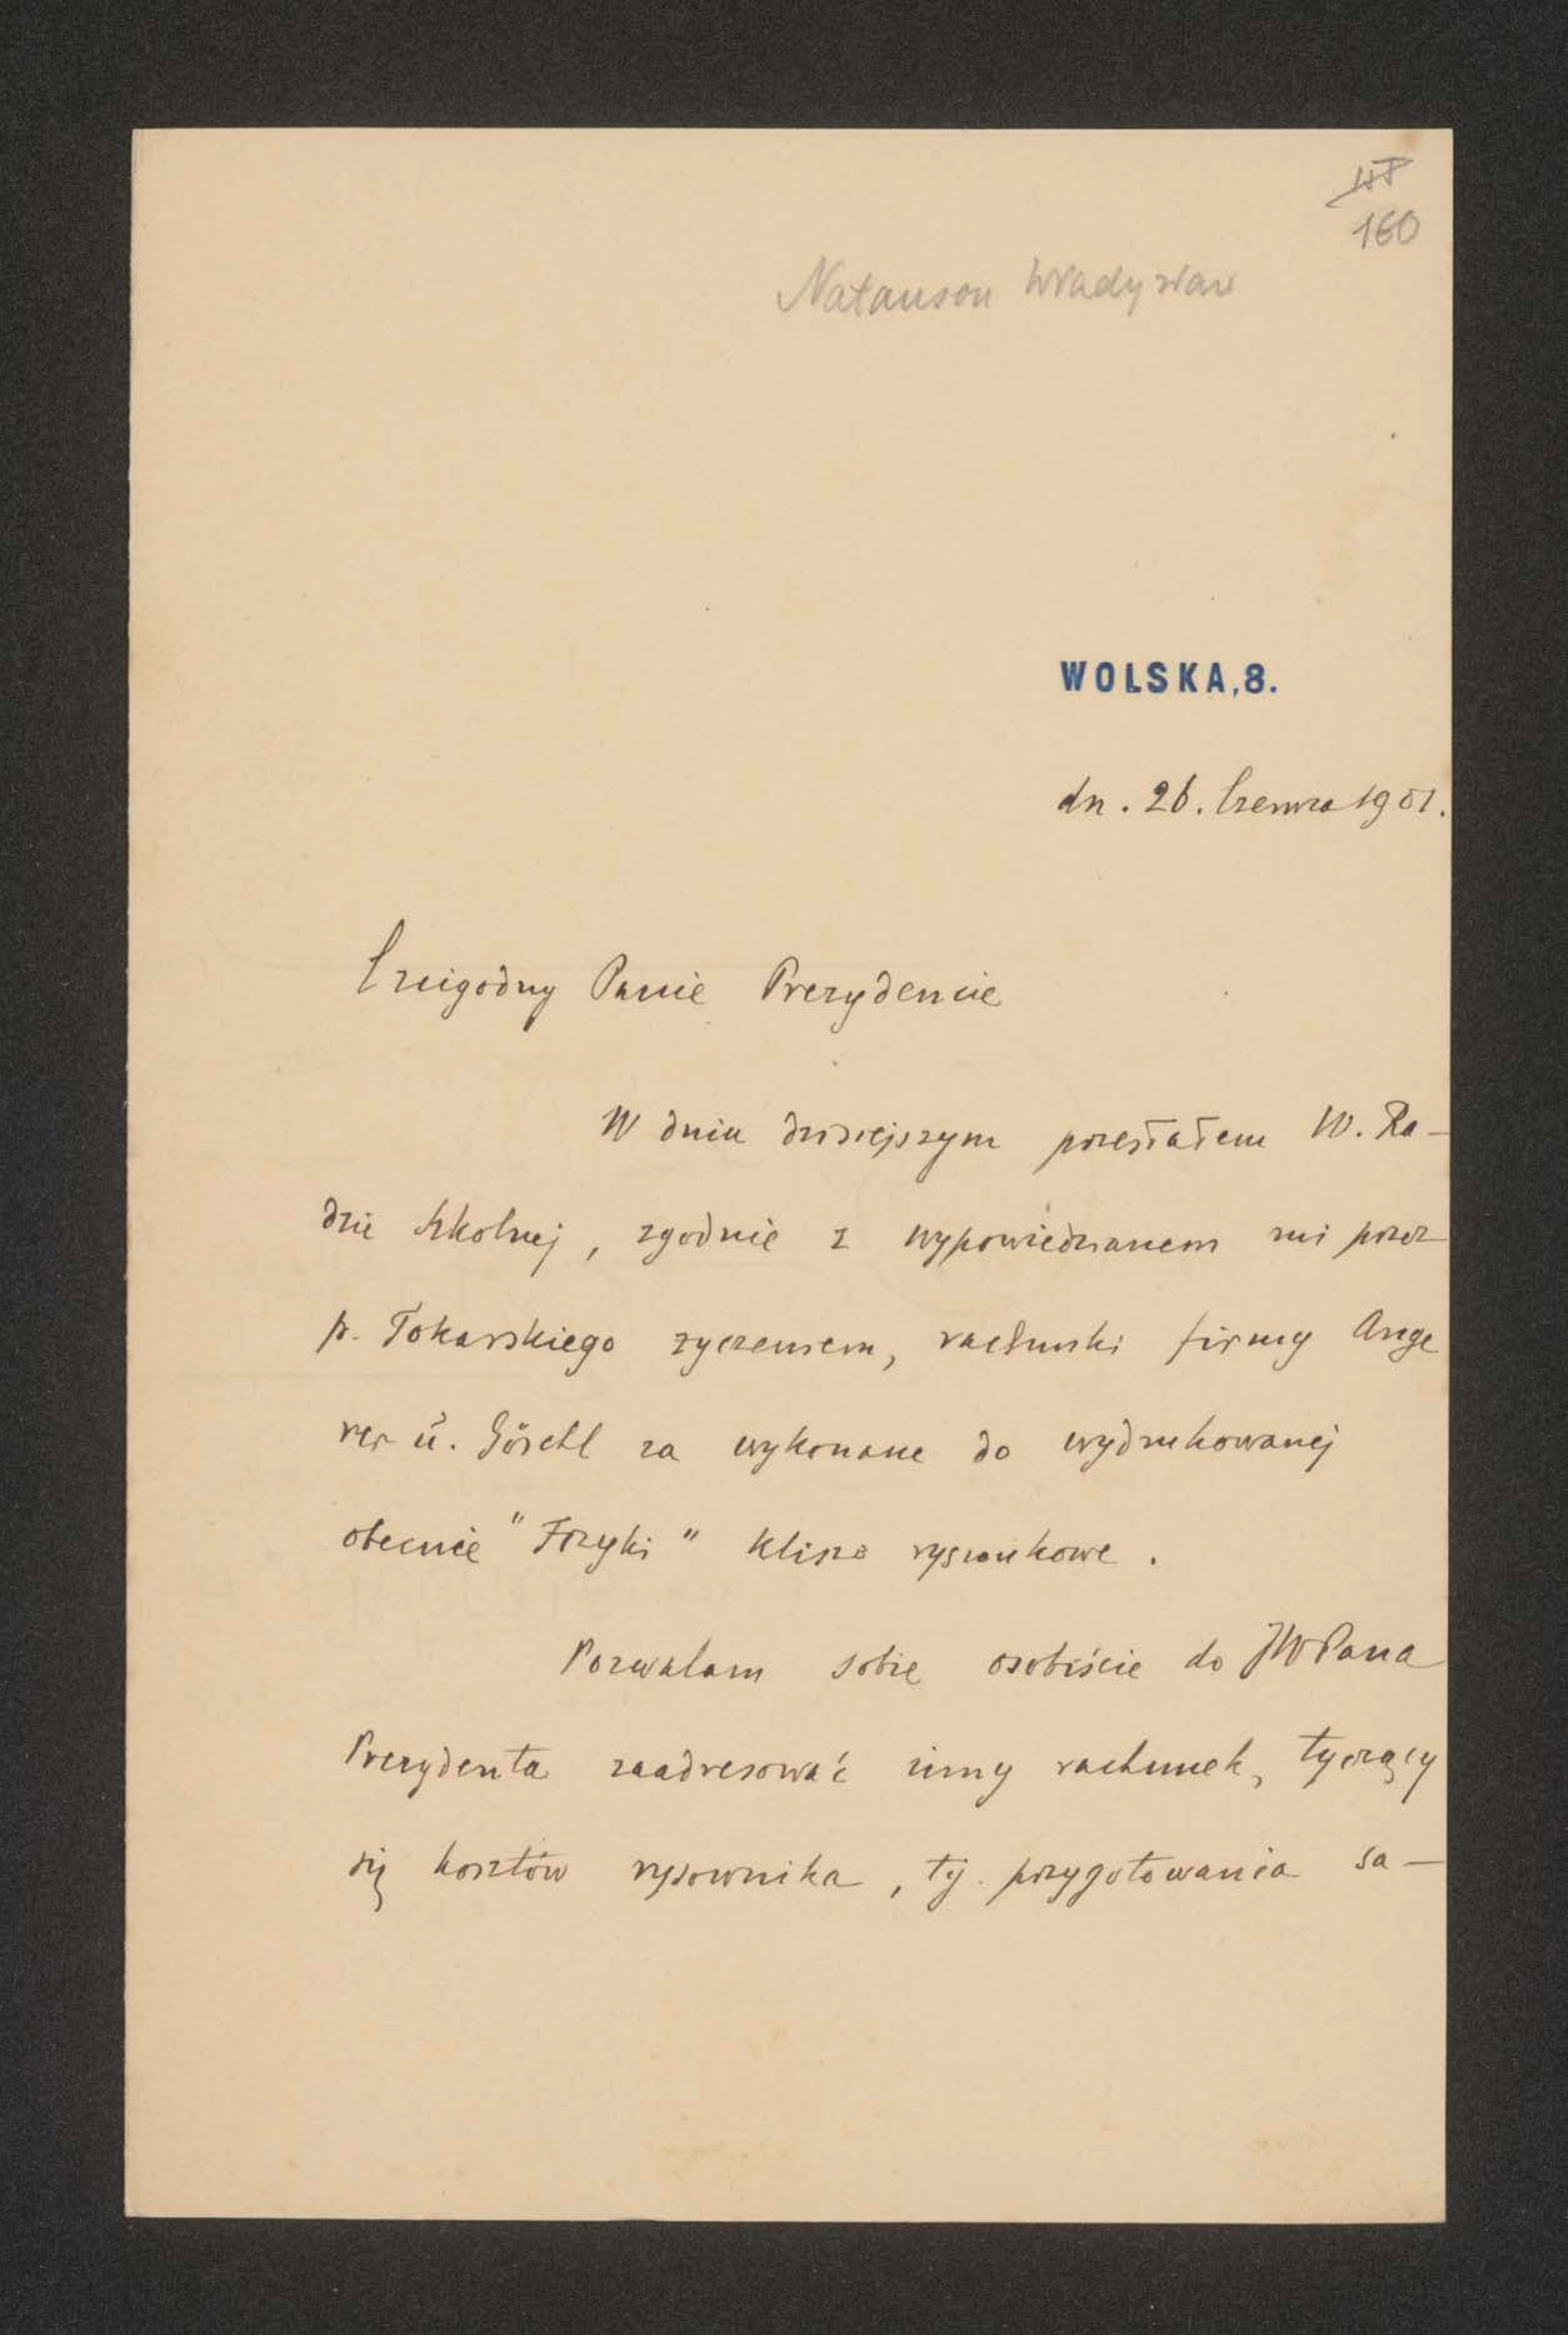 160
Natanson Władysław
WOLSKA,8.
dn. 26. Czerwca 1901.
Czcigodny Panie Prezydencie
W dniu dzisiejszym przesłałem W. Ra-
dzie Szkolnej, zgodnie z wypowiedzianem mi przez
p. Tokarskiego życzeniem, rachunki firmy Ange
rer u. Göschl za wykonane do wydrukowanej
obecnie "Fizyki" klisze rysunkowe.
Pozwalam sobie osobiście do JWPana
Prezydenta zaadresować inny rachunek, tyczący
się kosztów rysownika, tj. przygotowania sa-